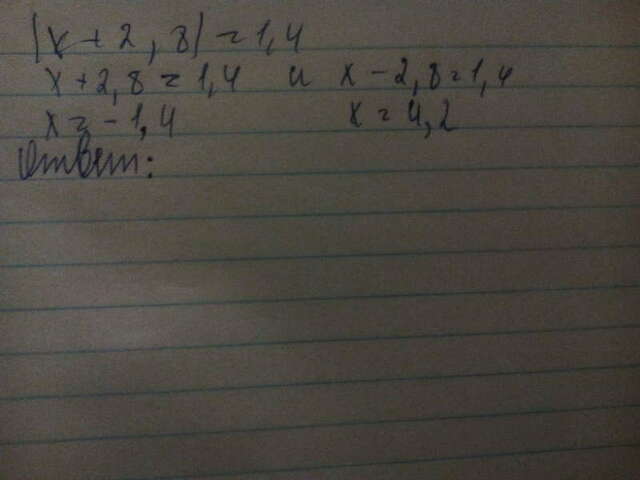 |x + 2,8| = 1,4
x + 2,8 = 1,4 и x - 2,8 = 1,4
x = -1,4 x = 4,2
Ответ: